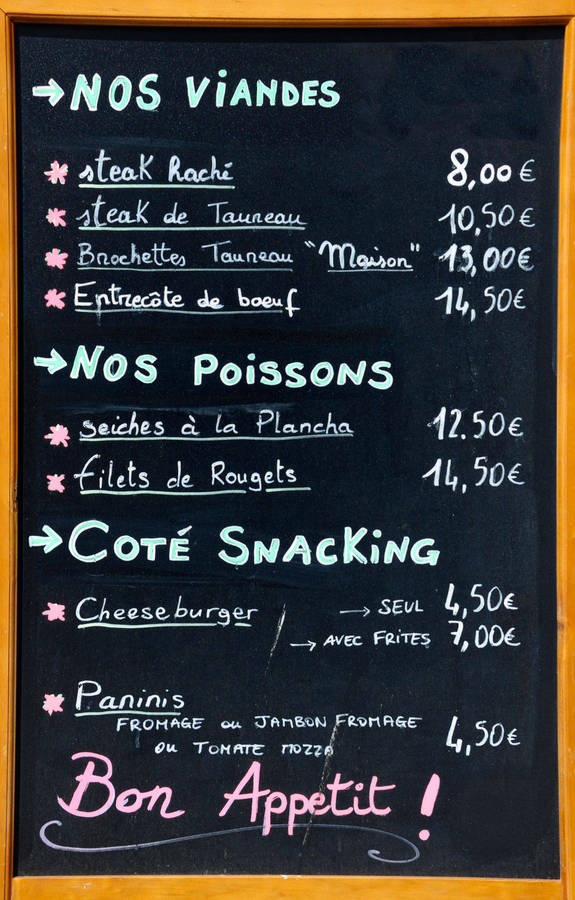 → NOS VIANDES
* steak Raché 8,00 €
* steak de Taureau 10,50 €
* Brochettes Taureau "Maison" 13,00 €
* Entrecôte de boeuf 14,50 €
→ NOS POISSONS
* Seiches à la Plancha 12.50 €
* filets de Rougets 14,50 €
→ COTÉ SNACKING
* Cheeseburger → SEUL 4,50 €
→ AVEC FRITES 7,00 €
* Paninis
FROMAGE ou JAMBON FROMAGE
ou TOMATE MOZZA 4,50 €
Bon Appetit !